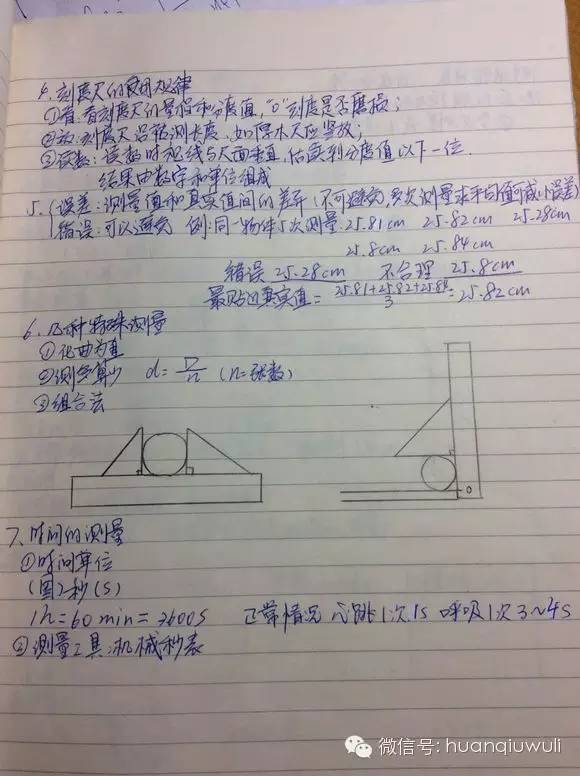 4. 刻度尺的使用规律
①看:看刻度尺的量程和分度值,"0"刻度是否磨损;
②放:刻度尺沿被测长度,如厚木尺应竖放;
③读数:读数时视线与尺面垂直,估读到分度值以下一位.
结果由数字和单位组成
5. 误差:测量值和真实值间的差异(不可避免,多次测量求平均值可减小误差)
错误:可以避免 例:同一物体5次测量:25.81cm 25.82cm 25.28cm
25.8cm 25.84cm
错误 25.28cm 不合理 25.8cm
最贴近真实值= (25.81+25.82+25.84)/3 =25.82cm
6. 几种特殊测量
①化曲为直
②测多算少 d=D/n (n=球数)
③组合法
0
7. 时间的测量
①时间单位
(国)秒(s)
1h=60min=3600s 正常情况 心跳1次1s 呼吸1次3~4s
②测量工具:机械秒表
微信号: huanqiuwuli